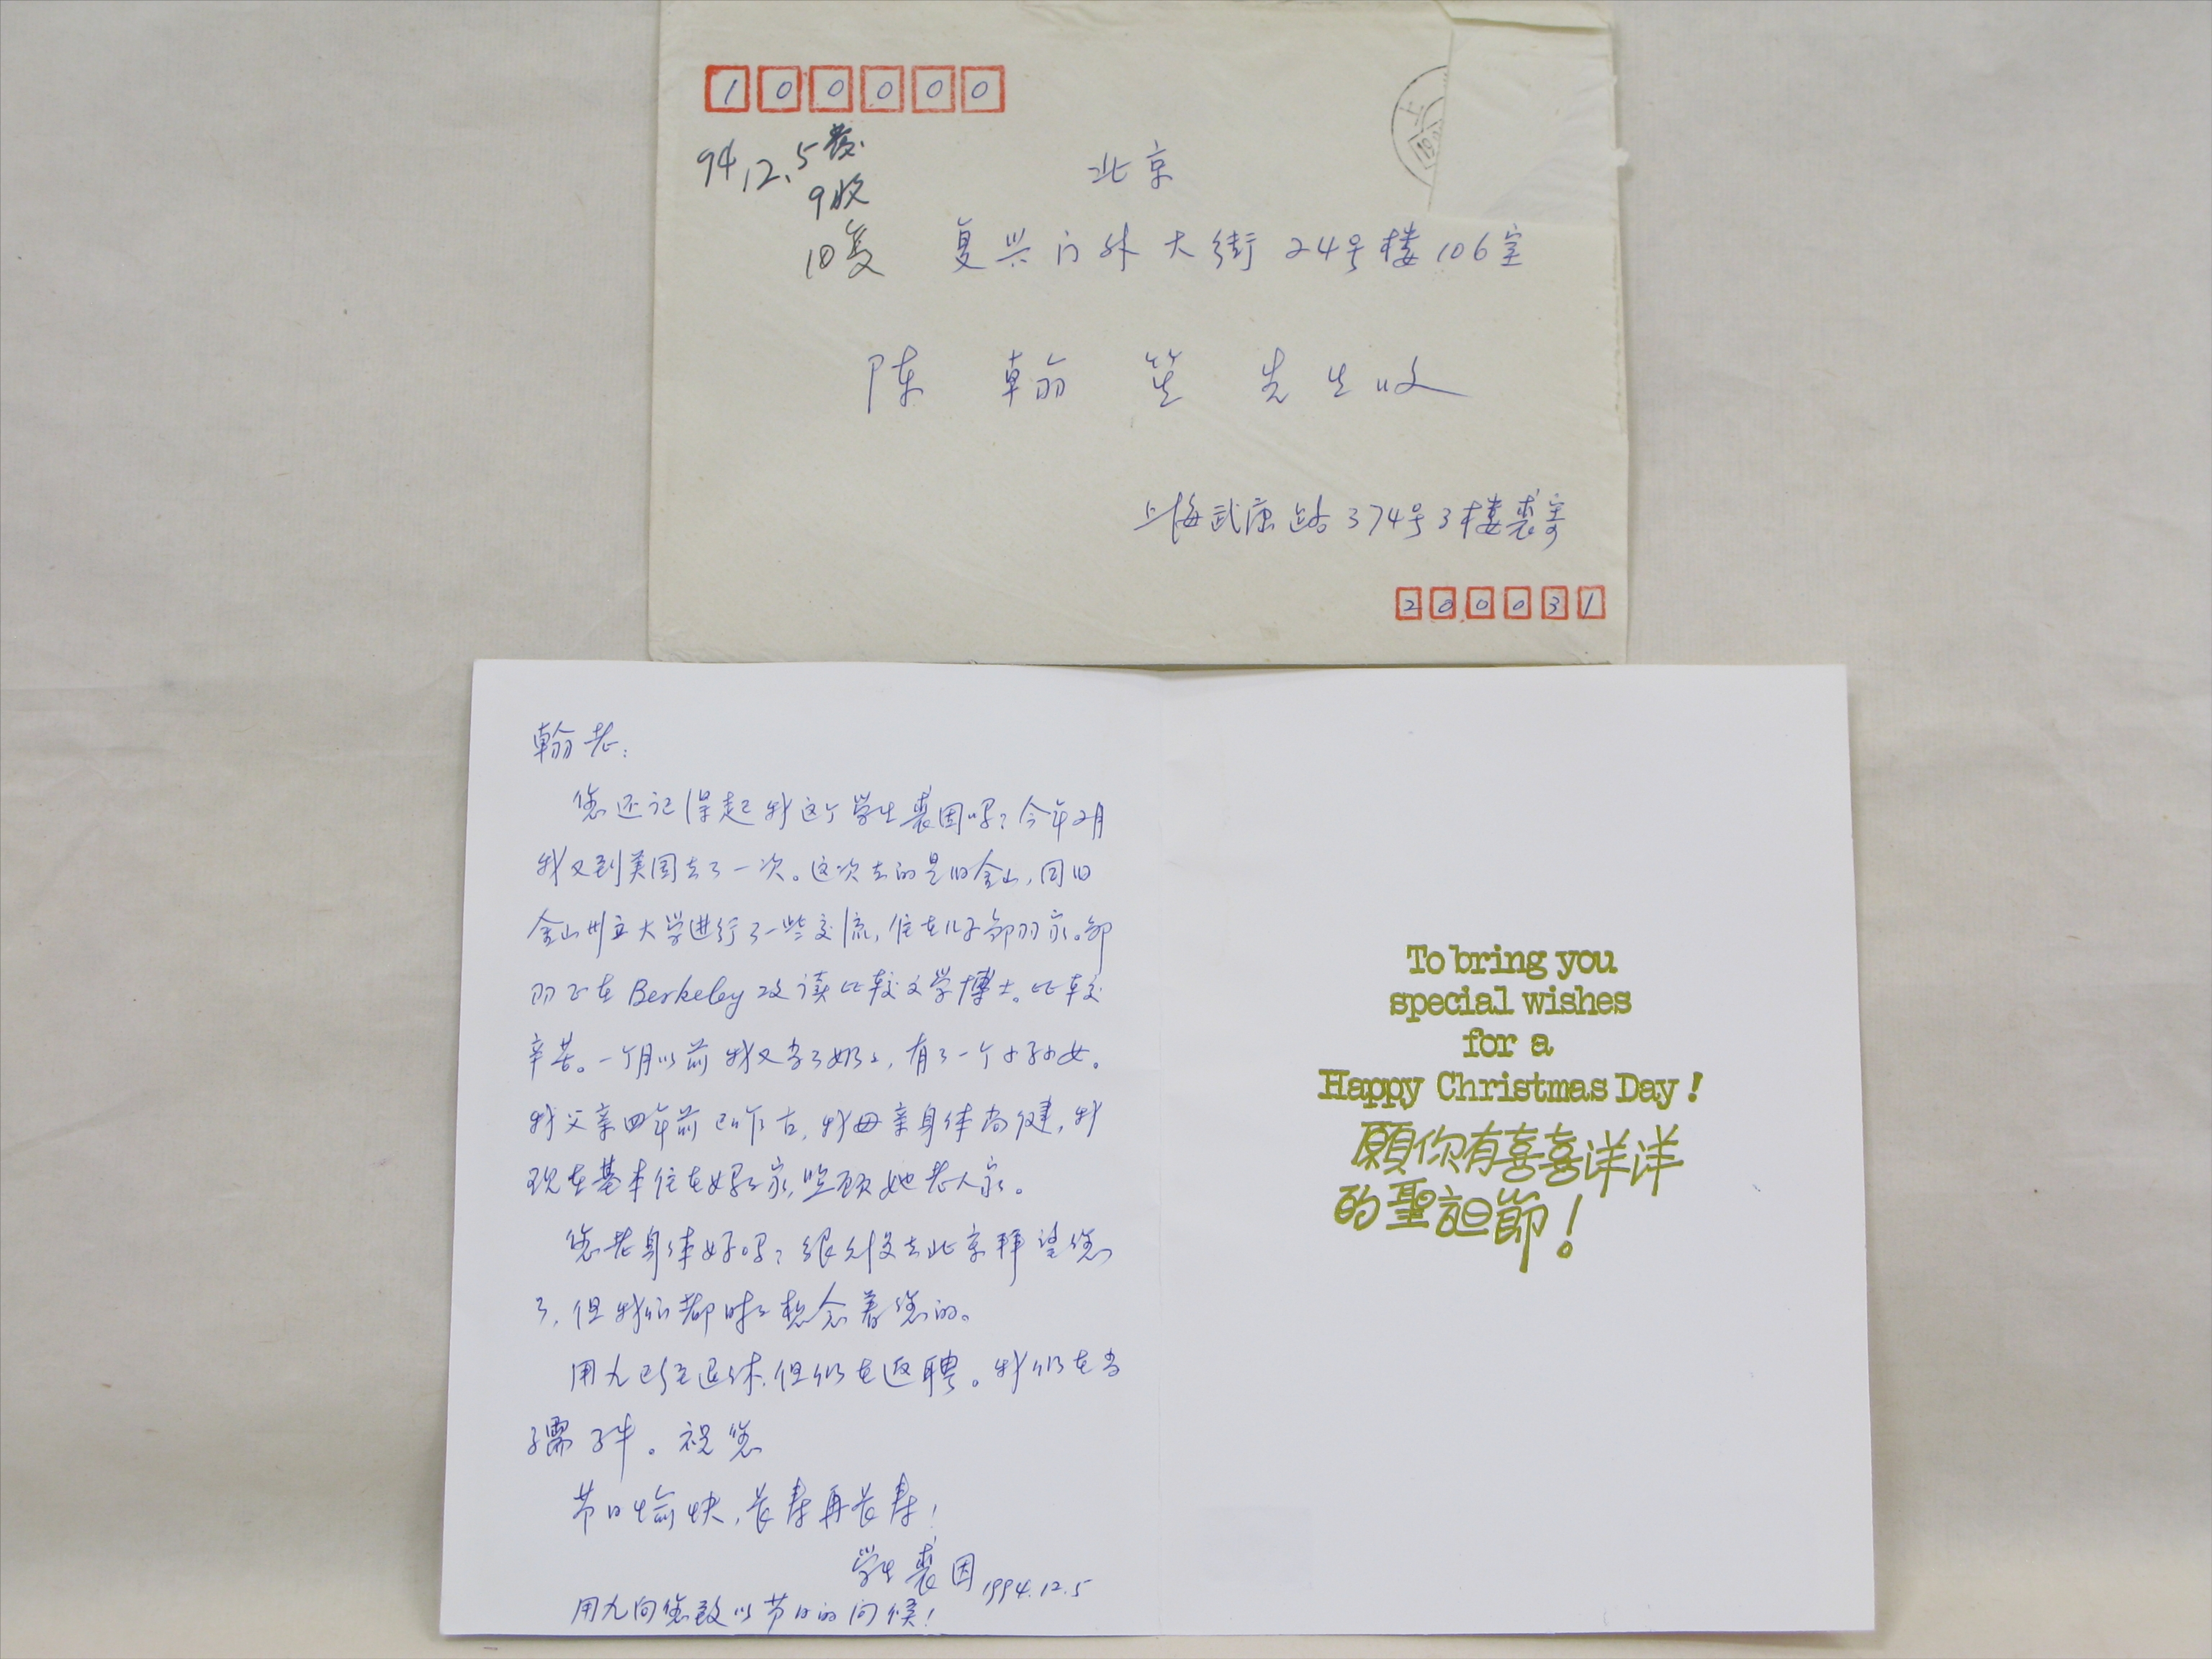 100000
94.12.5发
9收
10复
上
19
北京
复兴门外大街24号楼106室
陈翰笙先生收
上海武康路374号3楼裘寄
200031
翰老:
您还记得起我这个学生裘因吗?今年2月
我又到美国去了一次。这次去的是旧金山,同旧
金山州立大学进行了一些交流,住在儿子邹羽家。邹
羽正在Berkeley攻读比较文学博士。比较
辛苦。一个月以前我又当了奶々,有了一个小孙女。
我父亲四年前已作古,我母亲身体尚健,我
现在基本住在妈々家,照顾她老人家。
您老身体好吗?很久没去北京拜望您
了,但我们都时々想念着您的。
用九已经退休,但仍在返聘。我仍在当
孺子牛。祝您
节日愉快,长寿再长寿!
学生裘因1994.12.5
用九向您致以节日的问候!
To bring you
special wishes
for a
Happy Christmas Day!
願你有喜喜洋洋
的聖誕節!